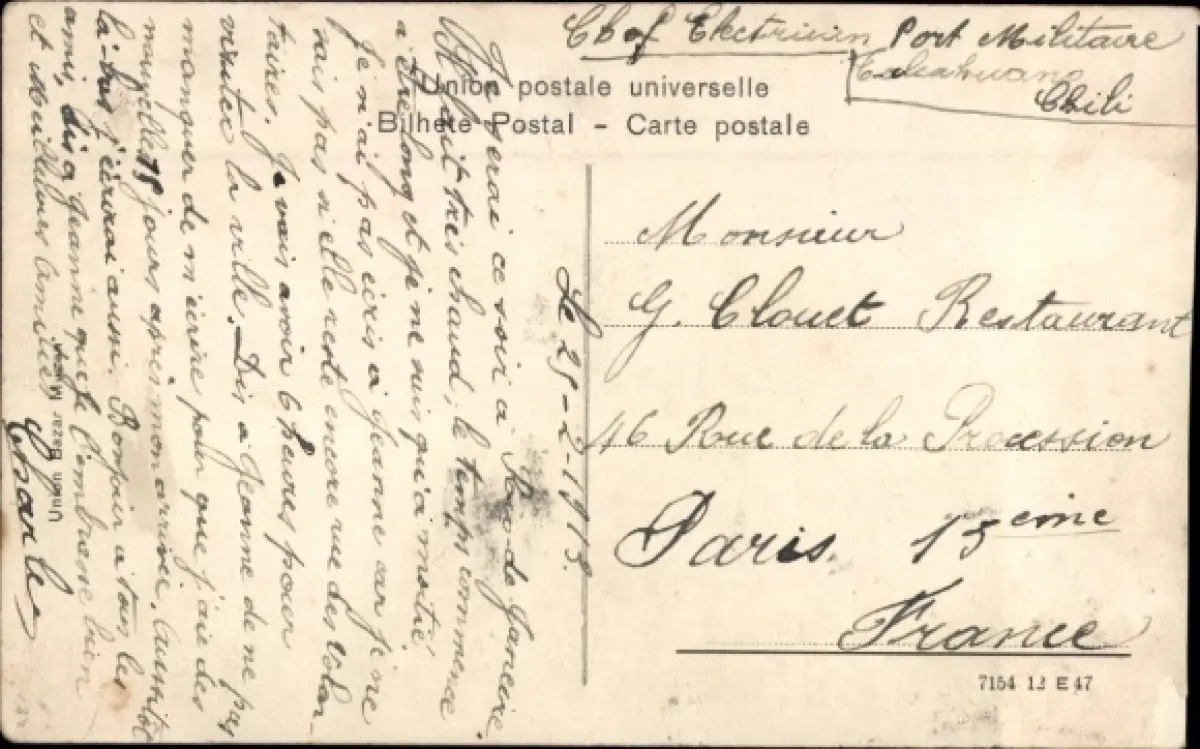 Chef Electricien Port Militaire
Talcahuano
Chili
Union postale universelle
Bilhete Postal – Carte postale
Le 25-2-1913
Je serai ce soir à Rio de Janeire.
Il fait très chaud, le temps commence
à être long et je ne suis qu'à moitié.
Je n'ai pas écris à Jeanne car je ne
sais pas si elle reste encore rue des volon-
taires. Je vais avoir 6 heures pour
visiter la ville. Dis à Jeanne de ne pas
manquer de m'écrire pour que j'aie des
nouvelles 15 jours après mon arrivée. Aussitôt
là-bas j'écrirai aussi. Bonjour à tous les
amis, dis à Jeanne que je l'embrasse bien
et Meilleures amitiés
Charles
Monsieur
G. Clouet Restaurant
46 Rue de la Procession
Paris 15ème
France
7154 12 E 47
Union Bazar